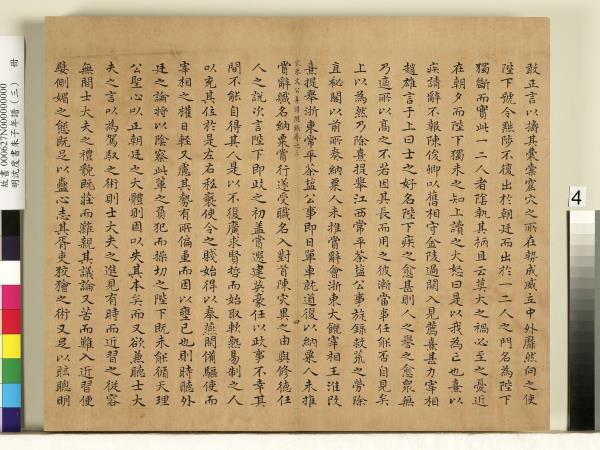 敢正言以擣其囊橐窟穴之所在勢成威立中外靡然向之使
陛下號令黜陟不復出於朝廷而出於一二人之門名為陛下
獨斷而實此一二人者陰執其柄且云莫大之禍必至之憂近
在朝夕而陛下獨未之知上讀之大怒曰是以我為亡也熹以
疾請辭不報陳俊卿以舊相守金陵過闕入見薦熹甚力宰相
趙雄言于上曰士之好名陛下疾之愈甚則人之譽之愈眾無
乃適所以高之不若因其長而用之彼漸當事任能否自見矣
上以為然乃除熹提舉江西常平茶鹽公事旋錄救荒之勞除
直秘閣以前所奏納粟人未推賞辭會浙東大饑宰相王淮改
熹提舉浙東常平茶鹽公事即日單車就道復以納粟人未推
宋朱文公年譜附錄卷之下 四
賞辭職名納粟賞行遂受職名入對首陳災異之由與修德任
人之說次言陛下即政之初蓋嘗選建英豪任以政事不幸其
間不能自得其人是以不復廣求賢哲而始取軟熟易制之人
以充其位於是左右私褻使令之賤始得以奉燕閒備驅使而
宰相之權日輕又慮其勢有所偏重而因以壅己也則時聽外
廷之論將以陰察此輩之負犯而操切之陛下既未能循天理
公聖心以正朝廷之大體則固以失其本矣而又欲兼聽士大
夫之言以為駕馭之術則士大夫之進見有時而近習之從容
無間士大夫之禮貌既莊而難親其議論又苦而難入近習便
嬖側媚之態既足以蠱心志其胥吏狡獪之術又足以眩聰明
故書 000627N000000000
明沈度書朱子年譜（三） 冊
4